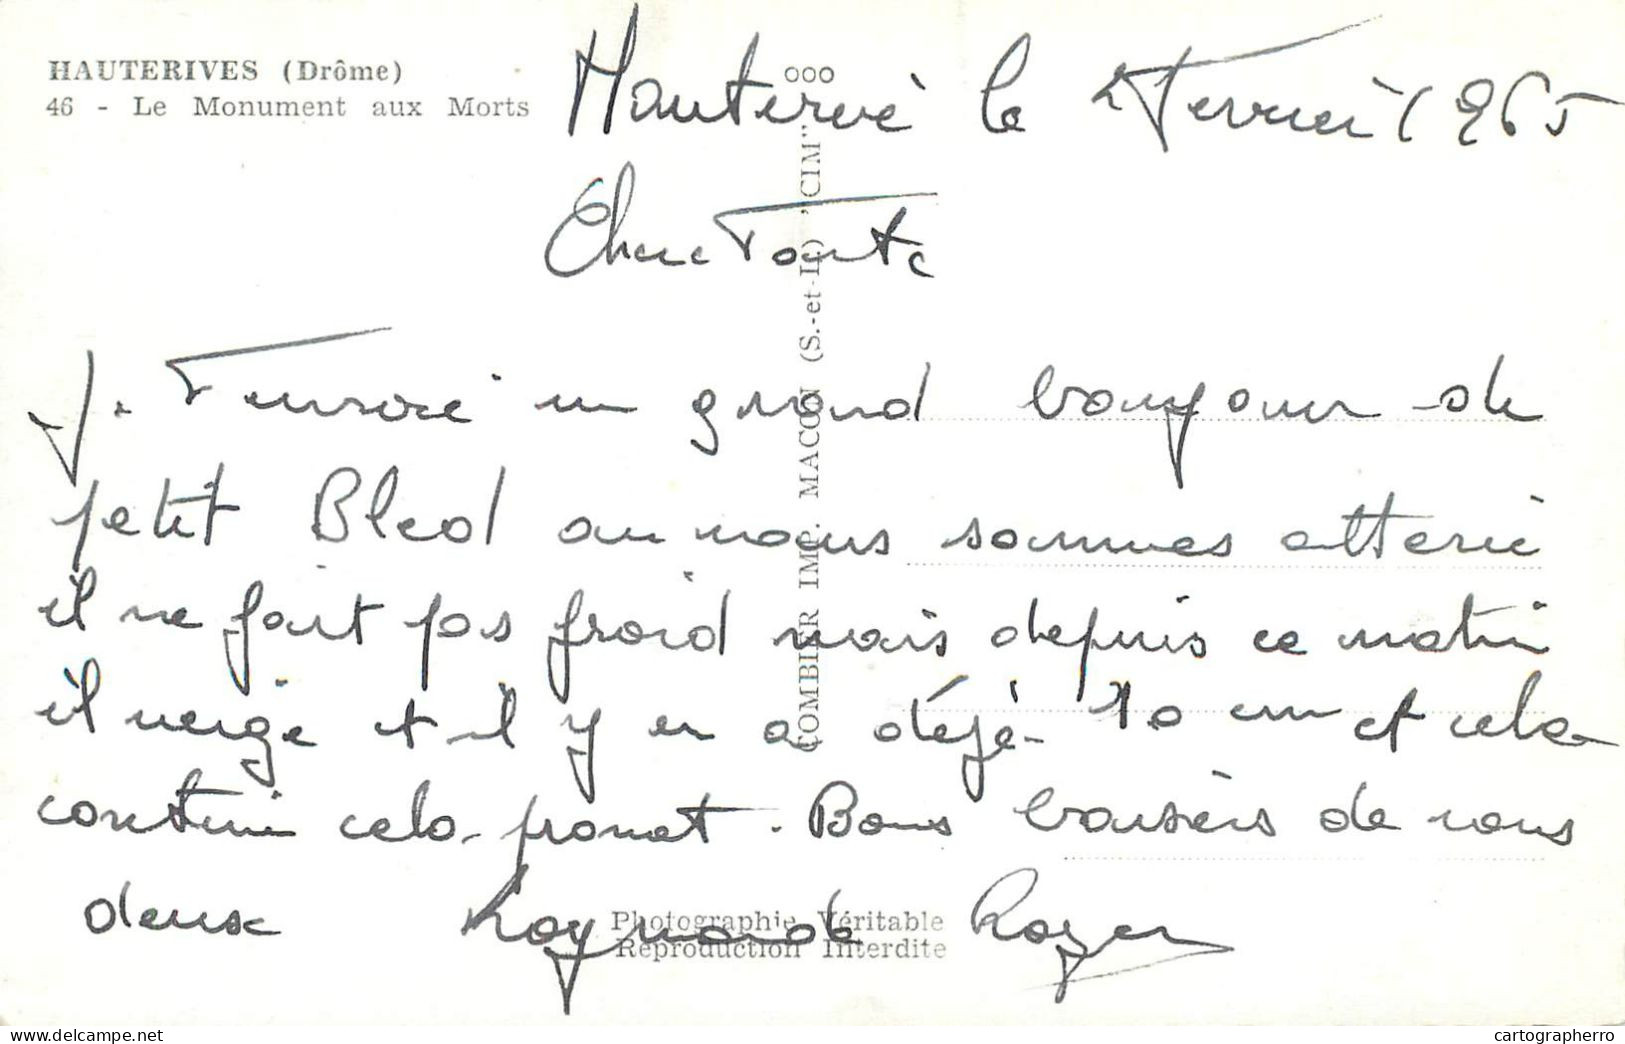 HAUTERIVES (Drôme)
46 - Le Monument aux Morts
Hauterive le 2 Fevrier 1965
Chere Tante
Je T'envoie un grand bonjour de
petit Bled ou nous sommes atterie
il ne fait pas froid mais depuis ce matin
il neige et il y en a déjà 10 cm et cela
continu cela promet. Bons baisers de nous
deux Raymonde Roger
COMBIER IMP. MACON (S.-et-L.) "CIM"
Photographie Véritable
Reproduction Interdite
delcampe.net
cartographerro